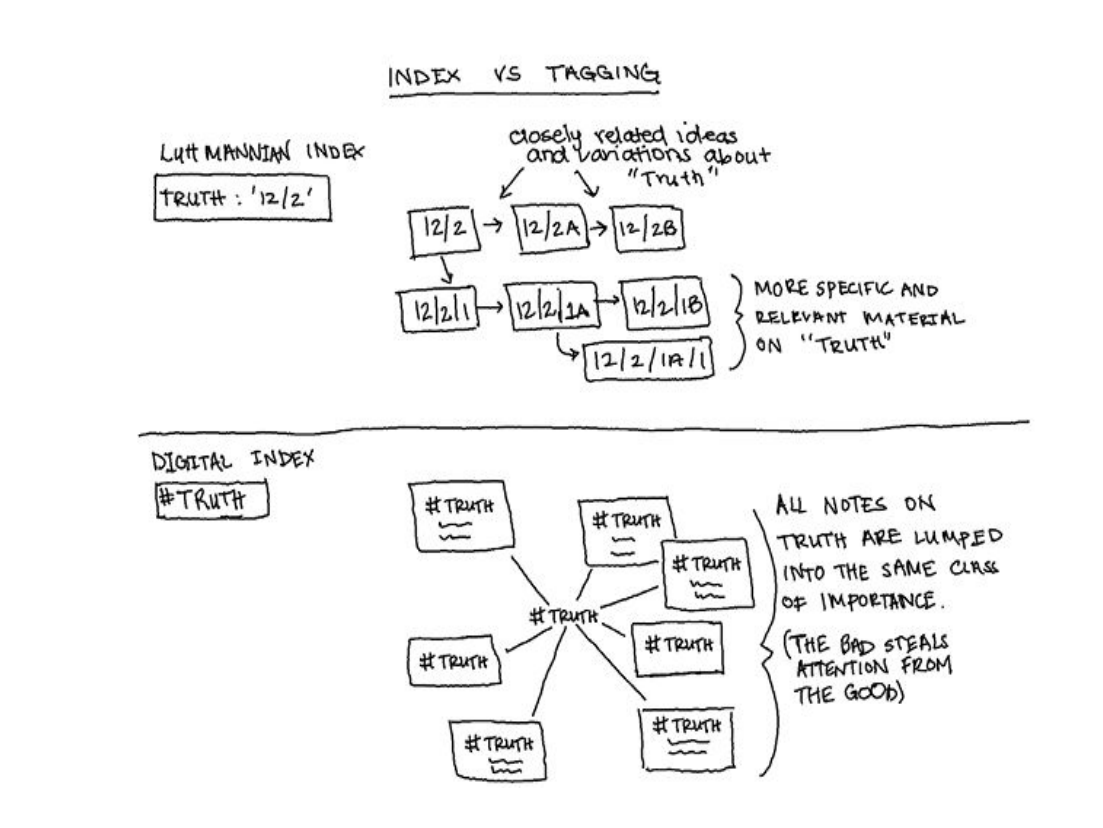 INDEX VS TAGGING
LUHMANNIAN INDEX
TRUTH : '12/2'
closely related ideas
and variations about
"Truth"
12/2
12/2A
12/2B
12/2/1
12/2/1A
12/2/1B
12/2/1A/1
MORE SPECIFIC AND
RELEVANT MATERIAL
ON "TRUTH"
DIGITAL INDEX
#TRUTH
#TRUTH
#TRUTH
#TRUTH
#TRUTH
#TRUTH
#TRUTH
#TRUTH
#TRUTH
ALL NOTES ON
TRUTH ARE LUMPED
INTO THE SAME CLASS
OF IMPORTANCE.
(THE BAD STEALS
ATTENTION FROM
THE GOOD)